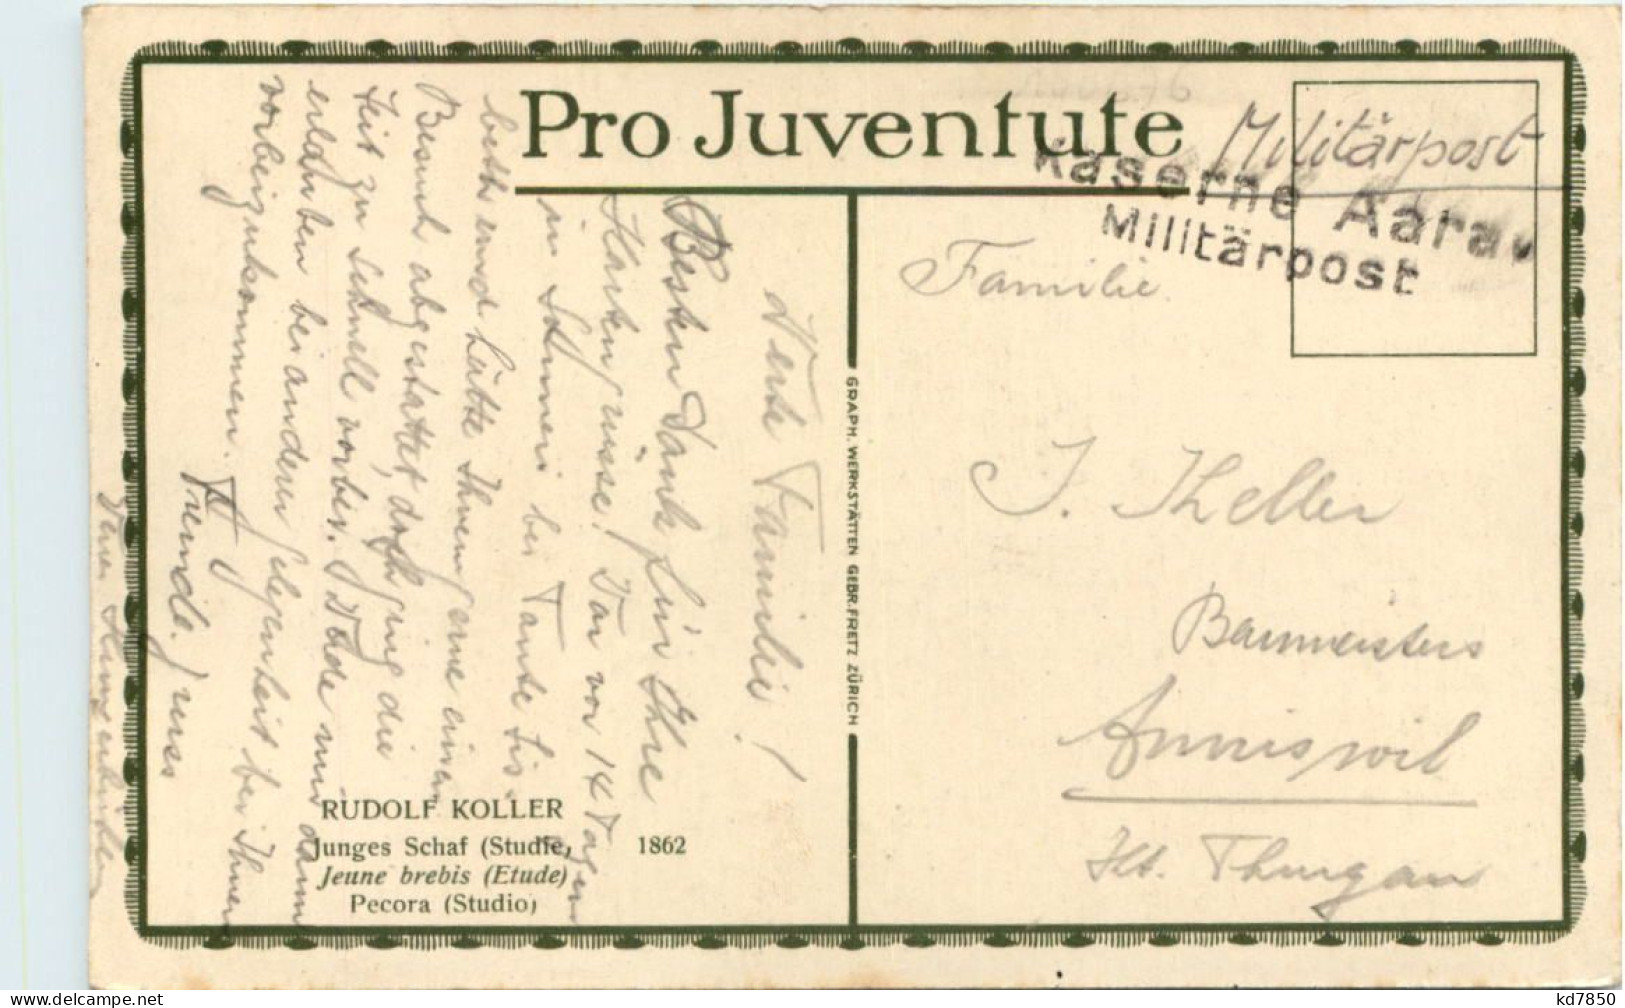 Pro Juventute
Militärpost
Kaserne Aarau
Militärpost
Familie
J. Keller
Baumeisters
Amriswil
Kt. Thurgau
Werte Familie!
Besten Dank für Ihre
Kartengrüsse! War vor 14 Tagen
in Sommeri bei Tante Lis-
beth und hätte Ihnen gerne einen
Besuch abgestattet, doch ging die
Zeit zu schnell vorbei. Werde mir dann
erlauben bei anderer Gelegenheit bei Ihnen
vorbeizukommen.
Freundl. Gruss
Ihrer
RUDOLF KOLLER
Junges Schaf (Studie) 1862
Jeune brebis (Etude)
Pecora (Studio)
GRAPH. WERKSTÄTTEN GEBR. FRETZ ZÜRICH
kd7850